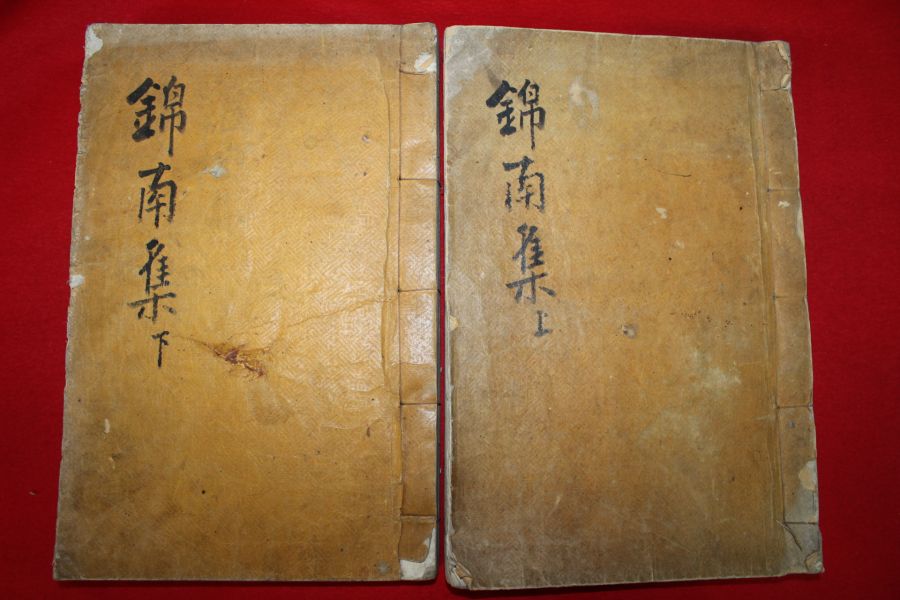 錦南集上
錦南集下